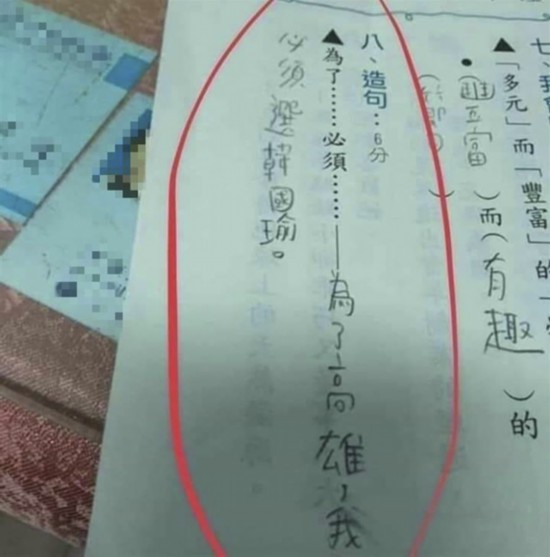 ▲「多元」而「豐富」的
•(豐富)而(有趣)的
八、造句:6分
▲為了……必須……——為了高雄,我
必須選韓國瑜。